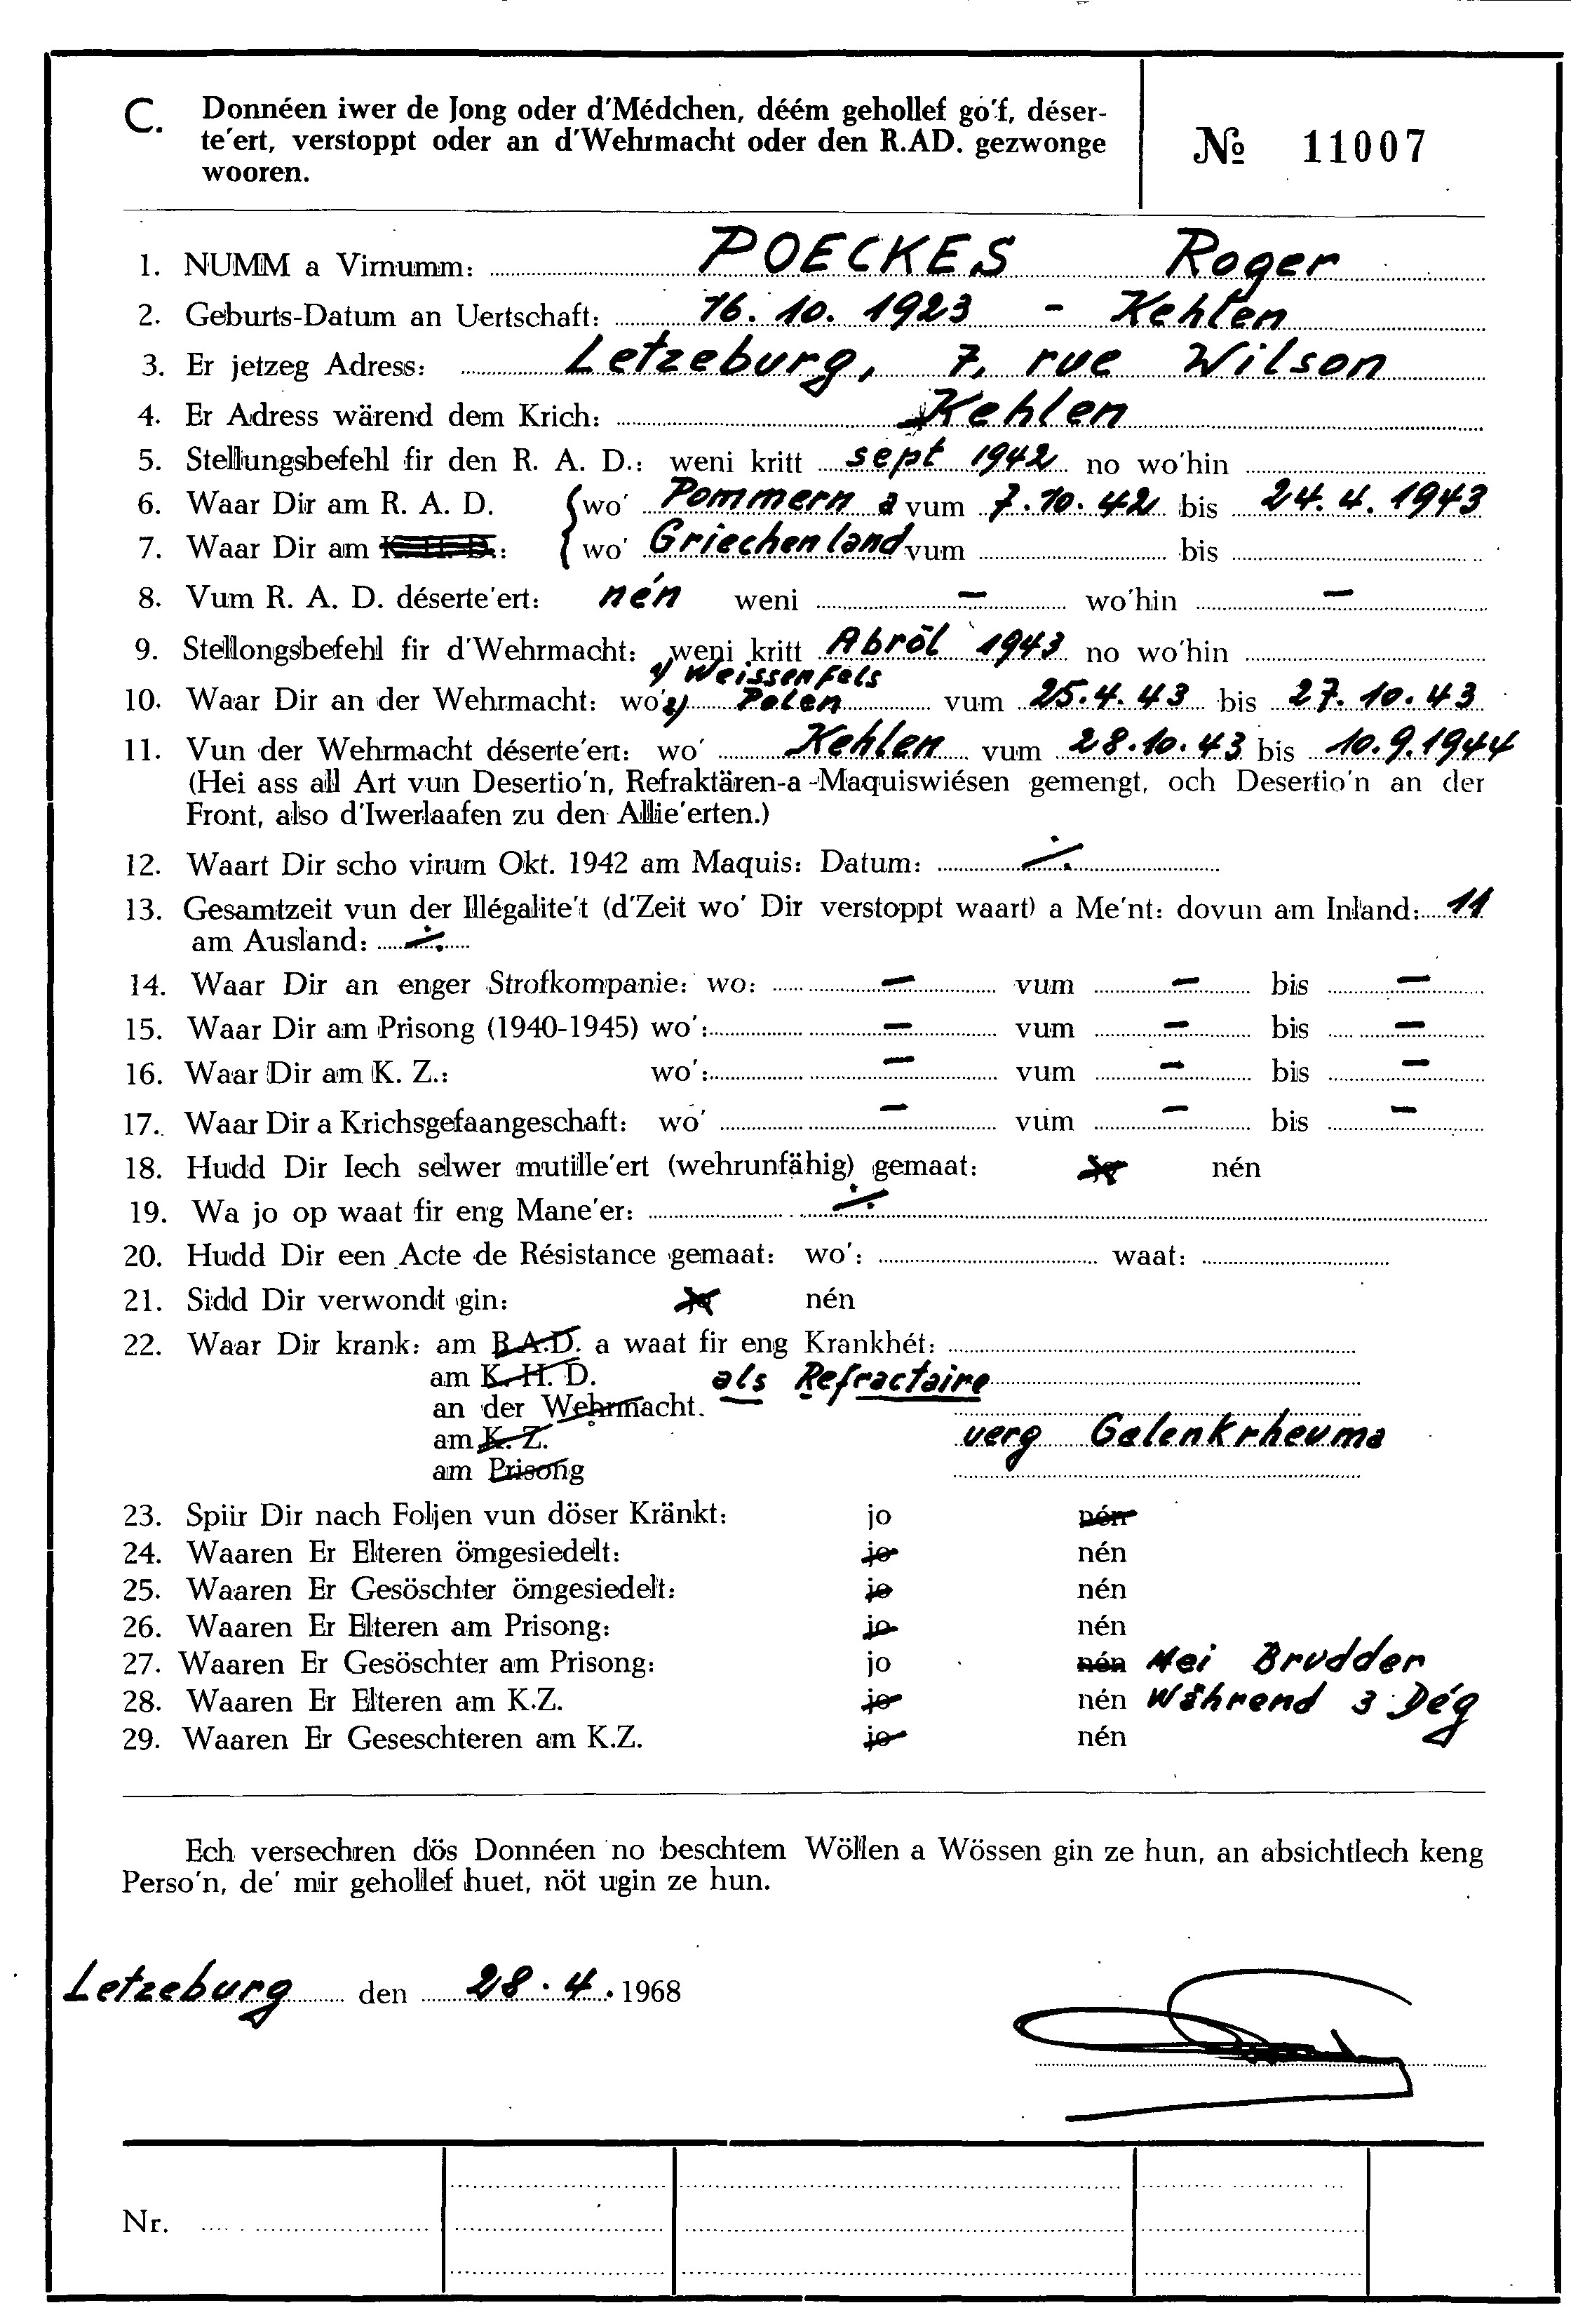 C. Donnéen iwer de Jong oder d'Médchen, déém gehollef go'f, déser-
te'ert, verstoppt oder an d'Wehrmacht oder den R.AD. gezwonge
wooren.
№ 11007
1. NUMM a Virnumm: POECKES Roger
2. Geburts-Datum an Uertschaft: 16. 10. 1923 - Kehlen
3. Er jetzeg Adress: Letzeburg, 7, rue Wilson
4. Er Adress wärend dem Krich: Kehlen
5. Stellungsbefehl fir den R. A. D.: weni kritt sept 1942 no wo'hin
6. Waar Dir am R. A. D. wo' Pommern a vum 7.10.42 bis 24.4.1943
7. Waar Dir am K. H. D.: wo' Griechenland vum bis
8. Vum R. A. D. déserte'ert: nén weni — wo'hin —
9. Stellongsbefehl fir d'Wehrmacht: weni kritt Abröl 1943 no wo'hin
1) Weissenfels
10. Waar Dir an der Wehrmacht: wo' 2) Polen vum 25.4.43 bis 27.10.43
11. Vun der Wehrmacht déserte'ert: wo' Kehlen vum 28.10.43 bis 10.9.1944
(Hei ass all Art vun Desertio'n, Refraktären-a-Maquiswiésen gemengt, och Desertio'n an der
Front, also d'Iwerlaafen zu den Allie'erten.)
12. Waart Dir scho virum Okt. 1942 am Maquis: Datum: ./.
13. Gesamtzeit vun der Illégalite't (d'Zeit wo' Dir verstoppt waart) a Me'nt: dovun am Inland: 11
am Ausland: ./.
14. Waar Dir an enger Strofkompanie: wo: — vum — bis —
15. Waar Dir am Prisong (1940-1945) wo': — vum — bis —
16. Waar Dir am K. Z.: wo': — vum — bis —
17. Waar Dir a Krichsgefaangeschaft: wo' — vum — bis —
18. Hudd Dir Iech selwer mutille'ert (wehrunfähig) gemaat: jo nén
19. Wa jo op waat fir eng Mane'er: ./.
20. Hudd Dir een Acte de Résistance gemaat: wo': waat:
21. Sidd Dir verwondt gin: jo nén
22. Waar Dir krank: am R.A.D. a waat fir eng Krankhét:
am K. H. D. als Refractaire
an der Wehrmacht.
am K. Z. verg Galenkrheuma
am Prisong
23. Spiir Dir nach Foljen vun döser Kränkt: jo nén
24. Waaren Er Elteren ömgesiedelt: jo nén
25. Waaren Er Gesöschter ömgesiedelt: jo nén
26. Waaren Er Elteren am Prisong: jo nén
27. Waaren Er Gesöschter am Prisong: jo nén Mei Brudder
28. Waaren Er Elteren am K.Z. jo nén Während 3 Dég
29. Waaren Er Geseschteren am K.Z. jo nén
Ech versechren dös Donnéen no beschtem Wöllen a Wössen gin ze hun, an absichtlech keng
Perso'n, de' mir gehollef huet, nöt ugin ze hun.
Letzeburg den 28.4.1968
Nr.